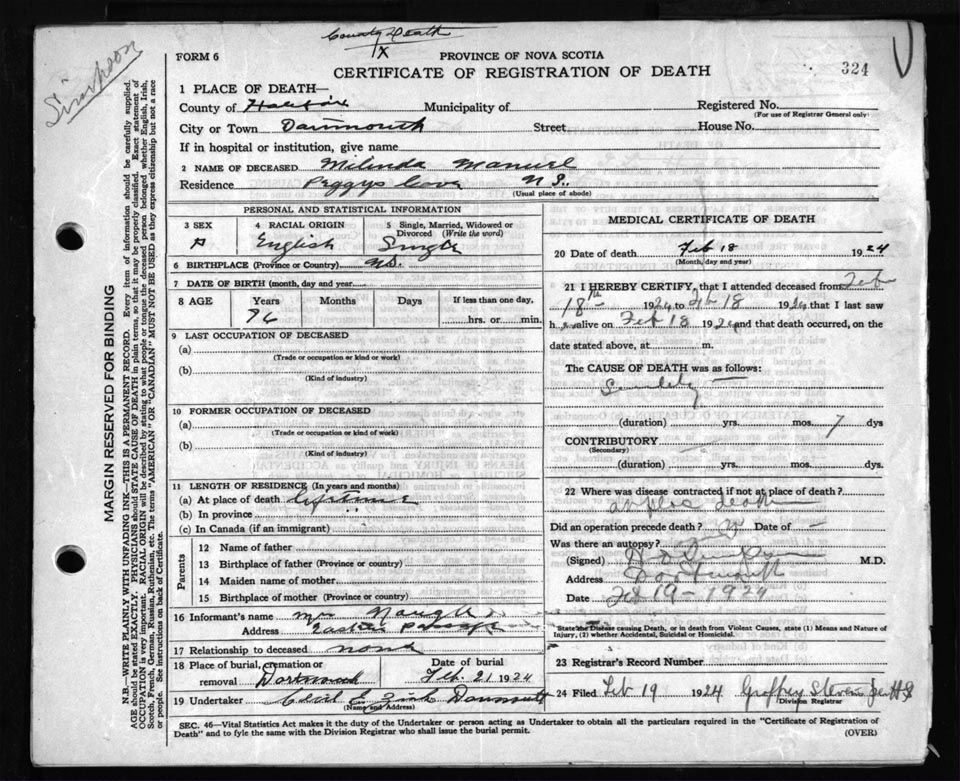 County Death
X
Simpson
FORM 6
PROVINCE OF NOVA SCOTIA
CERTIFICATE OF REGISTRATION OF DEATH
324
1 PLACE OF DEATH—
County of Halifax Municipality of Registered No.
(For use of Registrar General only)
City or Town Dartmouth Street House No.
If in hospital or institution, give name
2 NAME OF DECEASED Milinda Manuel
Residence Peggys Cove N S.
(Usual place of abode)
PERSONAL AND STATISTICAL INFORMATION
3 SEX 4 RACIAL ORIGIN 5 Single, Married, Widowed or Divorced (Write the word)
English Single
6 BIRTHPLACE (Province or Country) N.S.
7 DATE OF BIRTH (month, day and year)
8 AGE Years Months Days If less than one day,
76 hrs. or min.
9 LAST OCCUPATION OF DECEASED
(a)
(Trade or occupation or kind or work)
(b)
(Kind of industry)
10 FORMER OCCUPATION OF DECEASED
(a)
(Trade or occupation or kind of work)
(b)
(Kind of industry)
11 LENGTH OF RESIDENCE (In years and months)
(a) At place of death lifetime
(b) In province
(c) In Canada (if an immigrant)
Parents
12 Name of father
13 Birthplace of father (Province or country)
14 Maiden name of mother
15 Birthplace of mother (Province or country)
16 Informant's name Mrs Naugle
Address Eastern Passage
17 Relationship to deceased none
18 Place of burial, cremation or removal Dartmouth Date of burial Feb. 21 1924
19 Undertaker Zink Dartmouth
(Name and Address)
MEDICAL CERTIFICATE OF DEATH
20 Date of death Feb 18 1924
(Month, day and year)
21 I HEREBY CERTIFY, that I attended deceased from Feb
18th 1924 to Feb 18 1924 that I last saw
h alive on Feb 18 1924 and that death occurred, on the
date stated above, at m.
The CAUSE OF DEATH was as follows:
(duration) yrs. mos. 7 dys
CONTRIBUTORY
(Secondary)
(duration) yrs. mos. dys.
22 Where was disease contracted if not at place of death?
at place death
Did an operation precede death? Date of
Was there an autopsy?
(Signed) M.D.
Address Dartmouth
Date Feb 19 - 1924
State the Disease causing Death, or in death from Violent Causes, state (1) Means and Nature of
Injury, (2) whether Accidental, Suicidal or Homicidal.
23 Registrar's Record Number
24 Filed Feb 19 1924 Geoffrey Stevens
Division Registrar
SEC. 46—Vital Statistics Act makes it the duty of the Undertaker or person acting as Undertaker to obtain all the particulars required in the "Certificate of Registration of
Death" and to fyle the same with the Division Registrar who shall issue the burial permit.
(OVER)
MARGIN RESERVED FOR BINDING
N.B.—WRITE PLAINLY WITH UNFADING INK—THIS IS A PERMANENT RECORD. Every item of information should be carefully supplied.
AGE should be stated EXACTLY. PHYSICIANS should STATE CAUSE OF DEATH in plain terms, so that it may be properly classified. Exact statement of
OCCUPATION is very important. RACIAL ORIGIN will be described by stating to what people or tongue the deceased person belonged whether English, Irish,
Scotch, French, German, Russian, Ruthenian, etc. The terms "AMERICAN" OR "CANADIAN" MUST NOT BE USED as they express citizenship but not a race
or people. See instructions on back of Certificate.